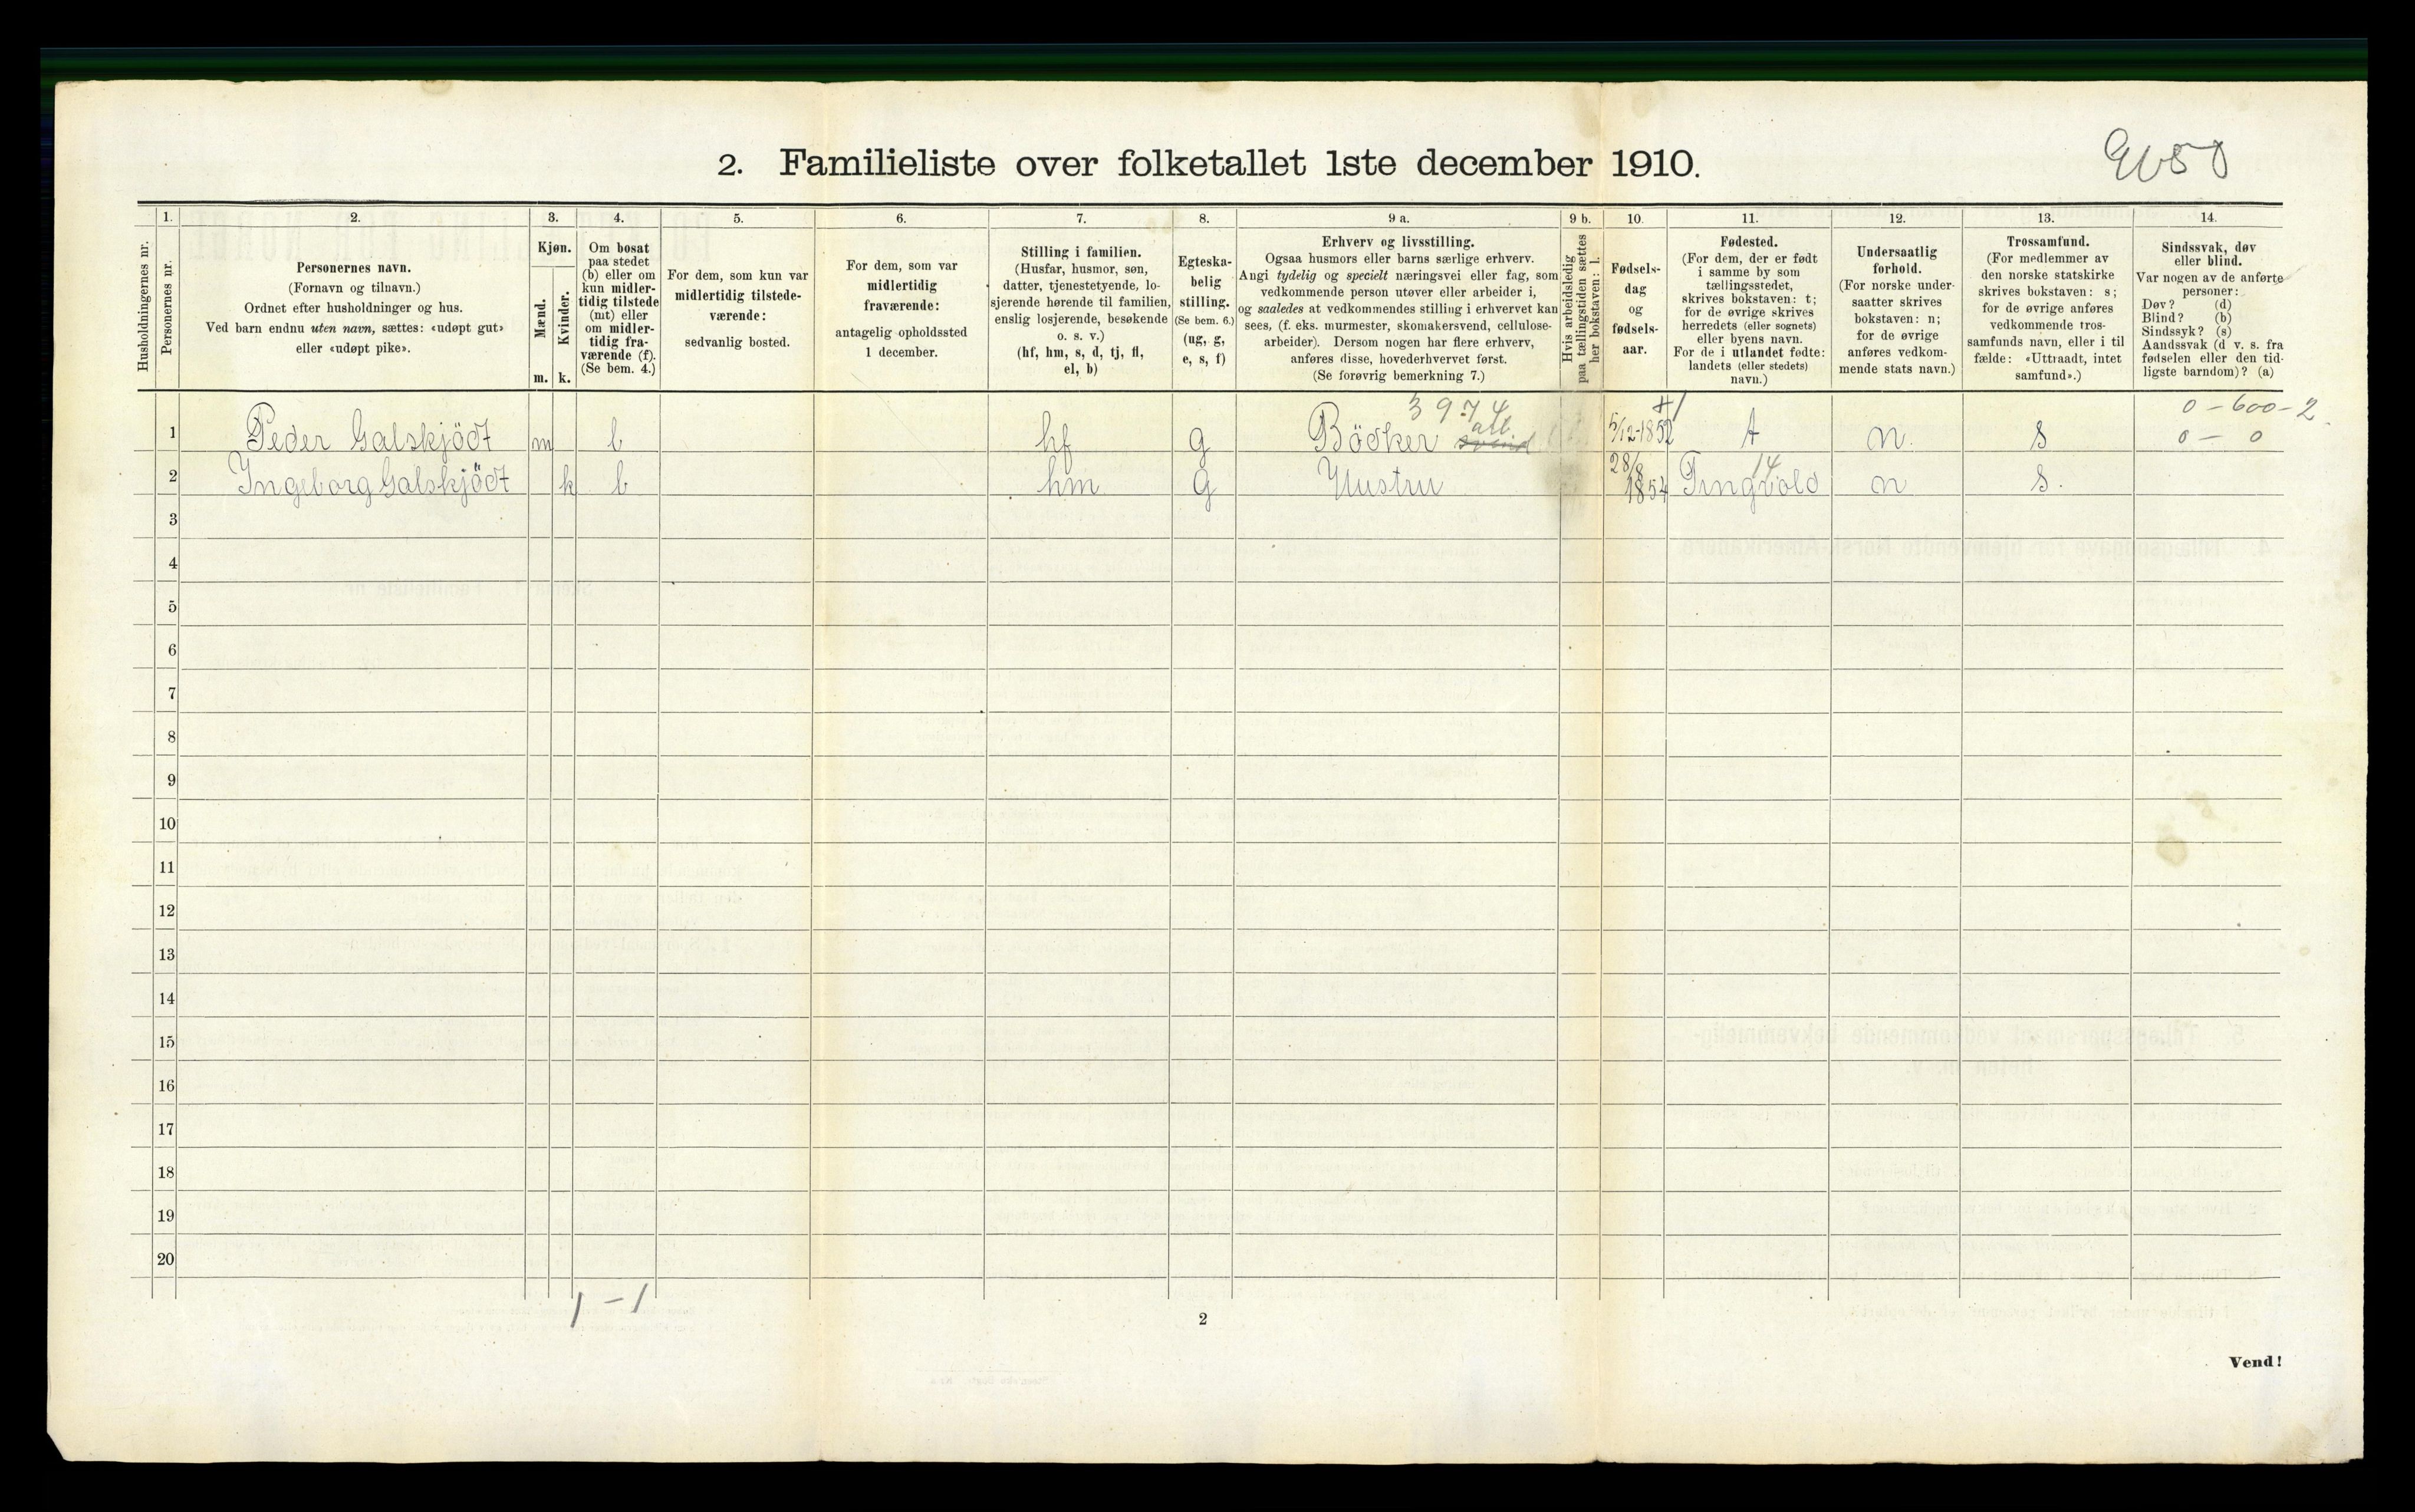 2. Familieliste over folketallet 1ste december 1910.
1. 2. 3. 4. 5. 6. 7. 8. 9 a. 9 b. 10. 11. 12. 13. 14.
Husholdningernes nr.
Personernes nr.
Personernes navn.
(Fornavn og tilnavn.)
Ordnet efter husholdninger og hus.
Ved barn endnu uten navn, sættes: «udøpt gut»
eller «udøpt pike».
Kjøn.
Mænd.
m.
Kvinder.
k.
Om bosat
paa stedet
(b) eller om
kun midler-
tidig tilstede
(mt) eller
om midler-
tidig fra-
værende (f).
(Se bem. 4.)
For dem, som kun var
midlertidig tilstede-
værende:
sedvanlig bosted.
For dem, som var
midlertidig
fraværende:
antagelig opholdssted
1 december.
Stilling i familien.
(Husfar, husmor, søn,
datter, tjenestetyende, lo-
sjerende hørende til familien,
enslig losjerende, besøkende
o. s. v.)
(hf, hm, s, d, tj, fl,
el, b)
Egteska-
belig
stilling.
(Se bem. 6.)
(ug, g,
e, s, f)
Erhverv og livsstilling.
Ogsaa husmors eller barns særlige erhverv.
Angi tydelig og specielt næringsvei eller fag, som
vedkommende person utøver eller arbeider i,
og saaledes at vedkommendes stilling i erhvervet kan
sees, (f. eks. murmester, skomakersvend, cellulose-
arbeider). Dersom nogen har flere erhverv,
anføres disse, hovederhvervet først.
(Se forøvrig bemerkning 7.)
Hvis arbeidsledig
paa tællingstiden sættes
her bokstaven: l.
Fødsels-
dag
og
fødsels-
aar.
Fødested.
(For dem, der er født
i samme by som
tællingsstedet,
skrives bokstaven: t;
for de øvrige skrives
herredets (eller sognets)
eller byens navn.
For de i utlandet fødte:
landets (eller stedets)
navn.)
Undersaatlig
forhold.
(For norske under-
saatter skrives
bokstaven: n;
for de øvrige
anføres vedkom-
mende stats navn.)
Trossamfund.
(For medlemmer av
den norske statskirke
skrives bokstaven: s;
for de øvrige anføres
vedkommende tros-
samfunds navn, eller i til
fælde: «Uttraadt, intet
samfund».)
Sindssvak, døv
eller blind.
Var nogen av de anførte
personer:
Døv? (d)
Blind? (b)
Sindssyk? (s)
Aandssvak (d v. s. fra
fødselen eller den tid-
ligste barndom)? (a)
3974 0-600-2
1 Peder Galskjödt m b hf g Bödker svend 5/12-1852 t n. s 0 - 0
2 Ingeborg Galskjödt k b hm g Hustru 28/8 1854 Tingvold 14 n s.
3
4
5
6
7
8
9
10
11
12
13
14
15
16
17
18
19
20
1 - 1
2
Vend!